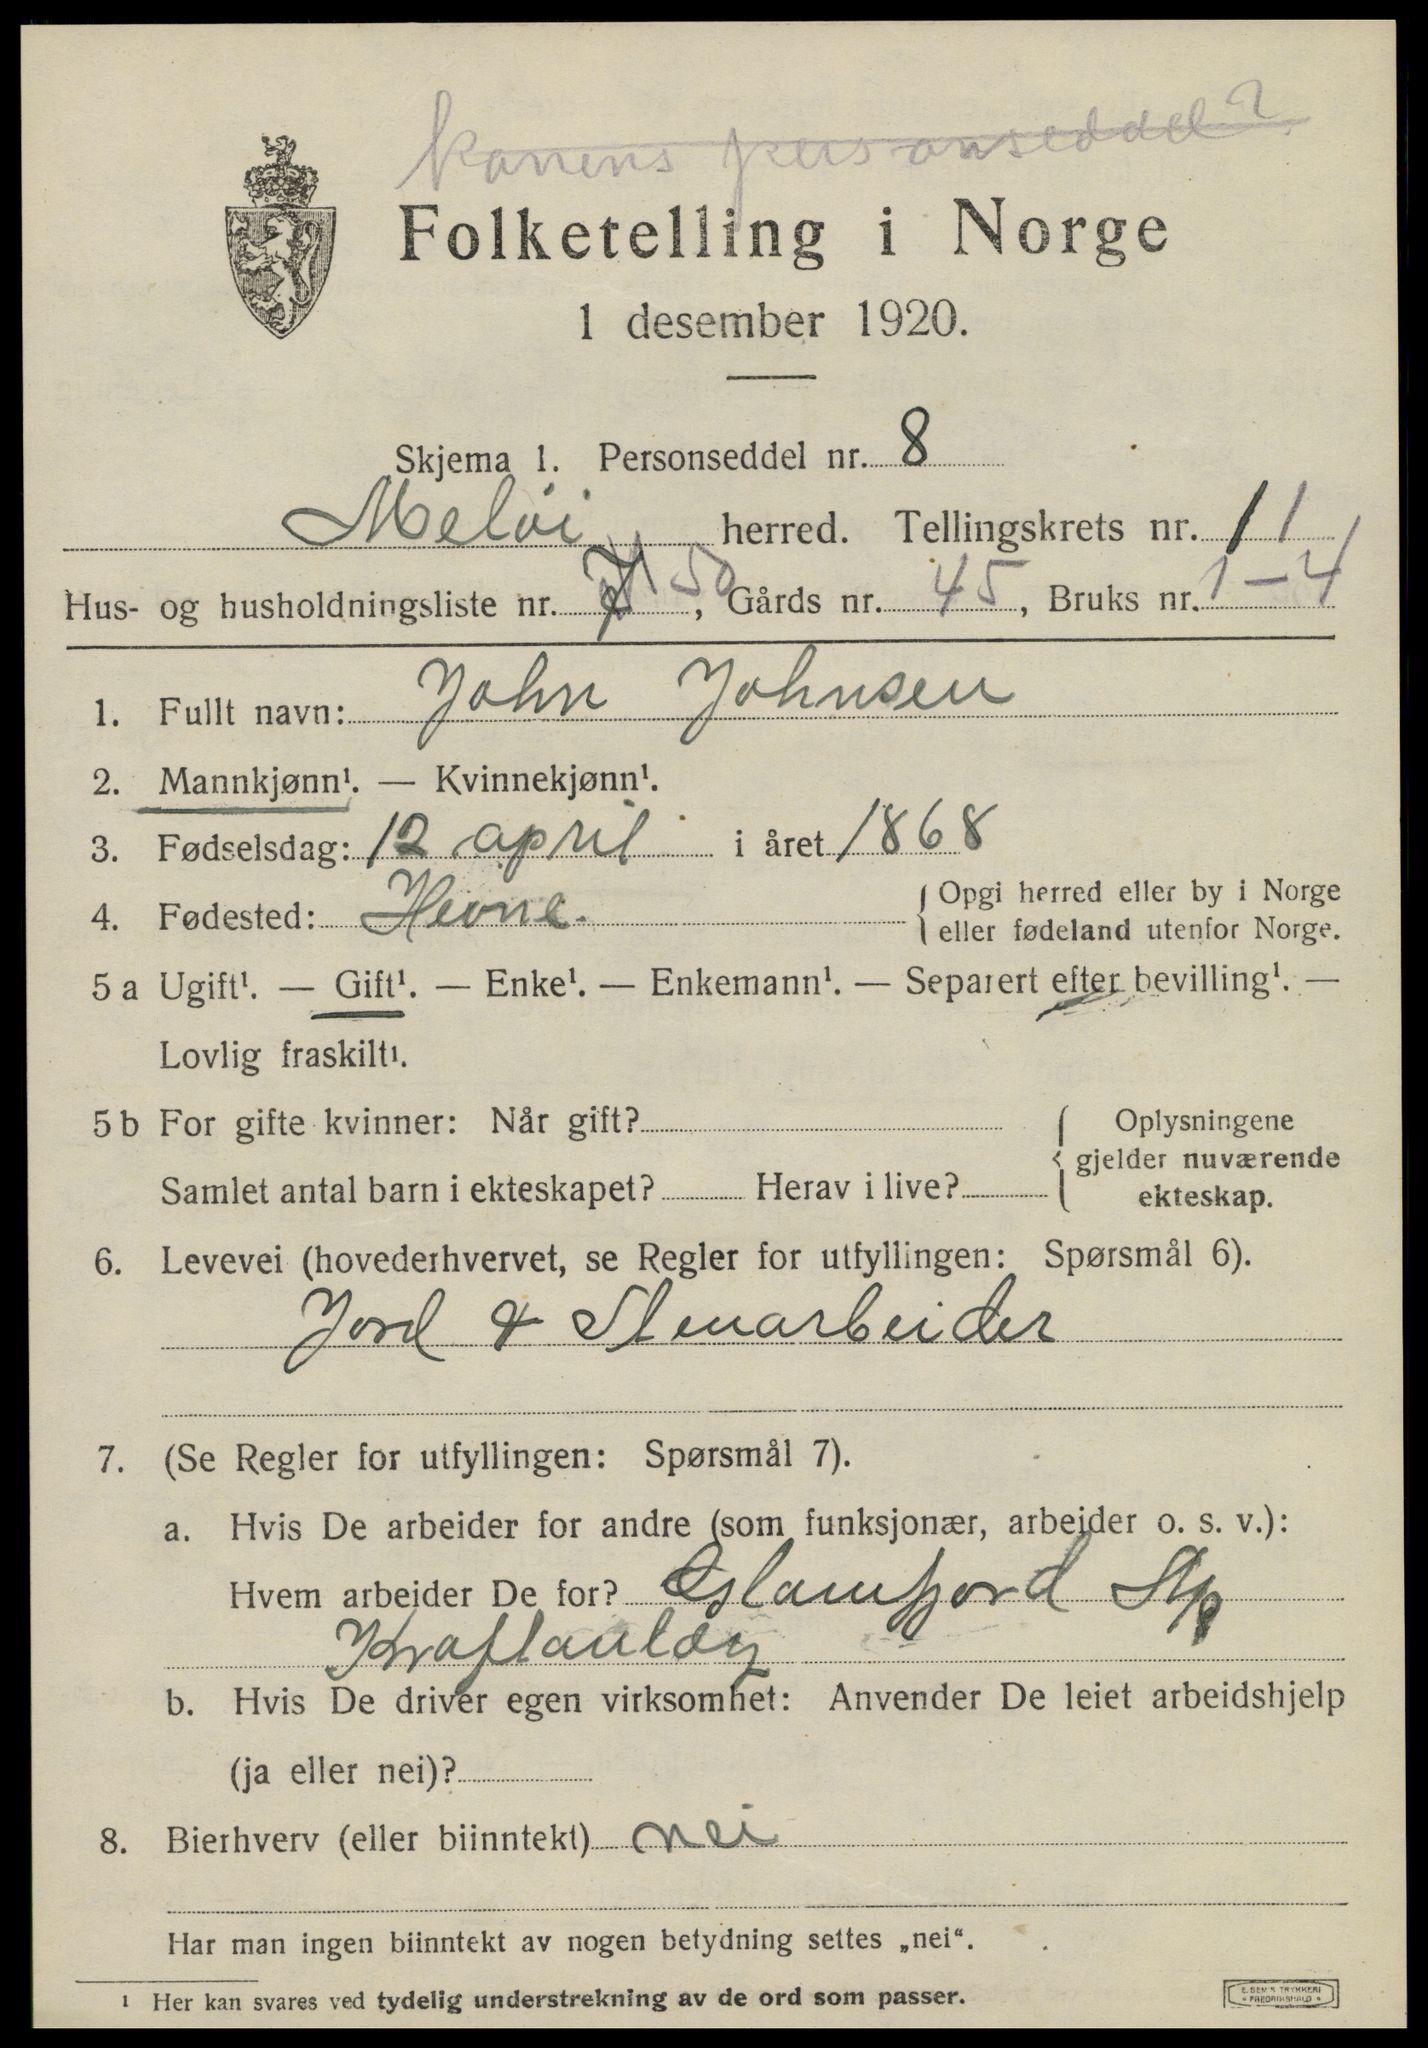 konens personseddel?
Folketelling i Norge
1 desember 1920.
Skjema 1. Personseddel nr. 8
Meløi herred. Tellingskrets nr. 11
Hus- og husholdningsliste nr. 50, Gårds nr. 45, Bruks nr. 1-4
1. Fullt navn: John Johnsen
2. Mannkjønn¹. — Kvinnekjønn¹.
3. Fødselsdag: 12 april i året 1868
4. Fødested: Hevne. Opgi herred eller by i Norge
eller fødeland utenfor Norge.
5 a Ugift¹. — Gift¹. — Enke¹. — Enkemann¹. — Separert efter bevilling¹. —
Lovlig fraskilt¹.
5 b For gifte kvinner: Når gift? Oplysningene
gjelder nuværende
Samlet antal barn i ekteskapet? Herav i live? ekteskap.
6. Levevei (hovederhvervet, se Regler for utfyllingen: Spørsmål 6).
Jord & Stenarbeider
7. (Se Regler for utfyllingen: Spørsmål 7).
a. Hvis De arbeider for andre (som funksjonær, arbeider o. s. v.):
Hvem arbeider De for? Glamfjord
Kraftanlæg
b. Hvis De driver egen virksomhet: Anvender De leiet arbeidshjelp
(ja eller nei)?
8. Bierhverv (eller biinntekt) nei
Har man ingen biinntekt av nogen betydning settes „nei“.
¹ Her kan svares ved tydelig understrekning av de ord som passer.
E. SEM'S TRYKKERI
FREDRIKSHALD